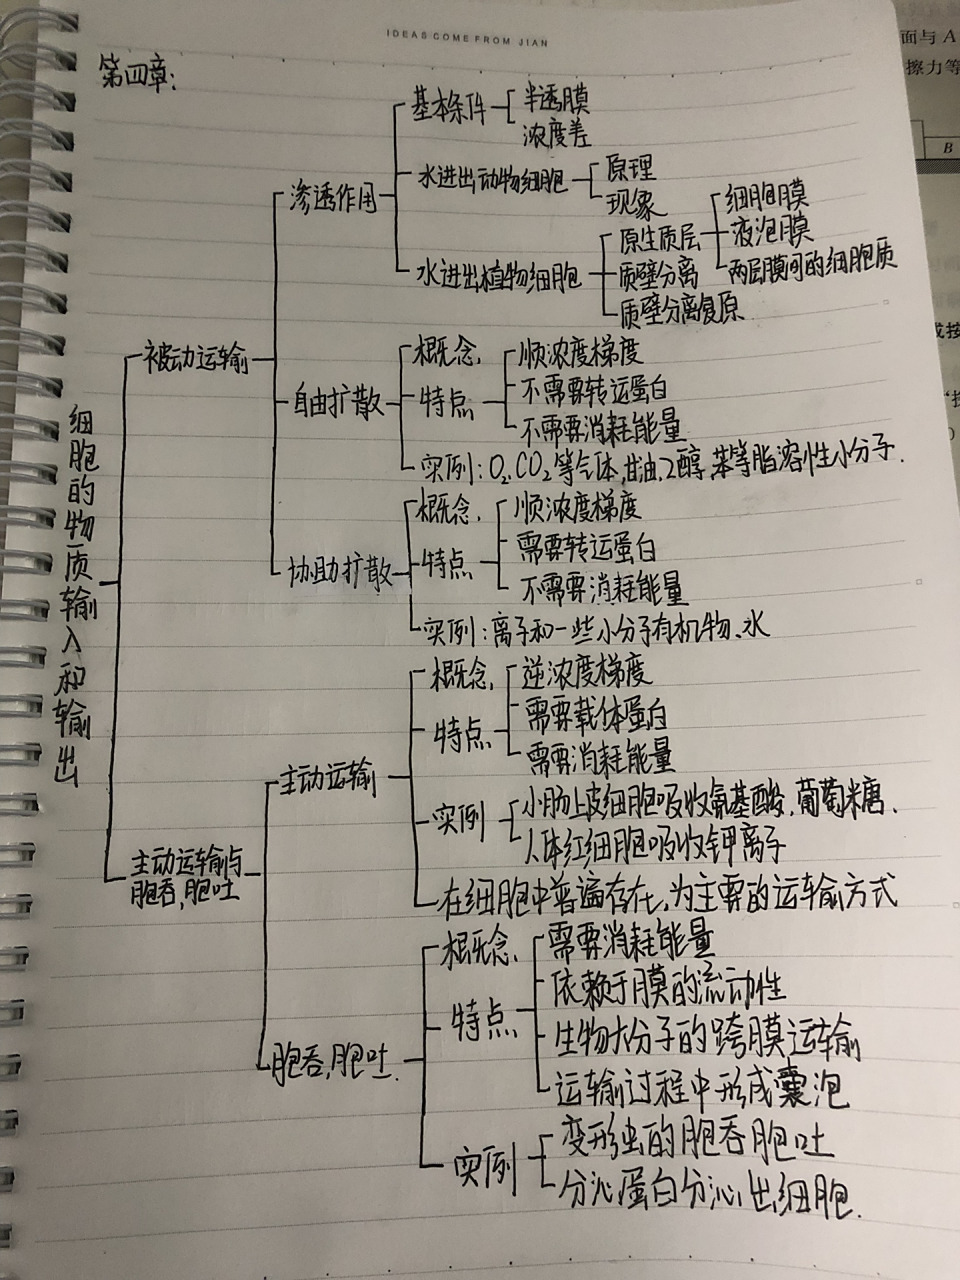 IDEAS COME FROM JIAN
第四章:
细胞的物质输入和输出
被动运输
渗透作用
基本条件
半透膜
浓度差
水进出动物细胞
原理
现象
水进出植物细胞
原生质层
细胞膜
液泡膜
两层膜间的细胞质
质壁分离
质壁分离复原
自由扩散
概念
特点
顺浓度梯度
不需要转运蛋白
不需要消耗能量
实例:O₂,CO₂等气体,甘油,乙醇,苯等脂溶性小分子.
协助扩散
概念
特点
顺浓度梯度
需要转运蛋白
不需要消耗能量
实例:离子和一些小分子有机物、水
主动运输与
胞吞,胞吐
主动运输
概念
特点
逆浓度梯度
需要载体蛋白
需要消耗能量
实例
小肠上皮细胞吸收氨基酸,葡萄糖.
人体红细胞吸收钾离子
在细胞中普遍存在,为主要的运输方式
胞吞,胞吐.
概念
特点
需要消耗能量
依赖于膜的流动性
生物大分子的跨膜运输
运输过程中形成囊泡
实例
变形虫的胞吞胞吐
分泌蛋白分泌出细胞.
面与A
擦力等
B